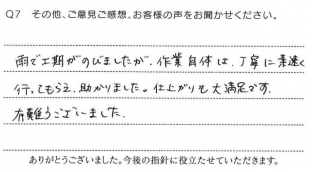 Q7 その他、ご意見ご感想、お客様の声をお聞かせください。
雨で工期がのびましたが、作業自体は、丁寧に素速く
行ってもらえ、助かりました。仕上がりも大満足です。
有難うございました。
ありがとうございました。今後の指針に役立たせていただきます。